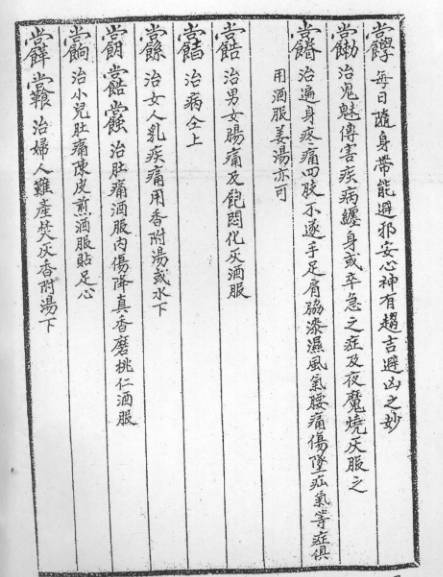 每日隨身帶能避邪安心神有趨吉避凶之妙
治鬼魅傳害疾病纏身或卒急之症及夜魔燒灰服之
治遍身疼痛四肢不遂手足肩脇濕風氣腰痛傷墜疝氣等症俱
用酒服姜湯亦可
治男女腸痛及飽悶化灰酒服
治病仝上
治女人乳疾痛用香附湯或水下
治肚痛酒服內傷降真香磨桃仁酒服
治小兒肚痛陳皮煎酒服貼足心
治婦人難產焚灰香附湯下